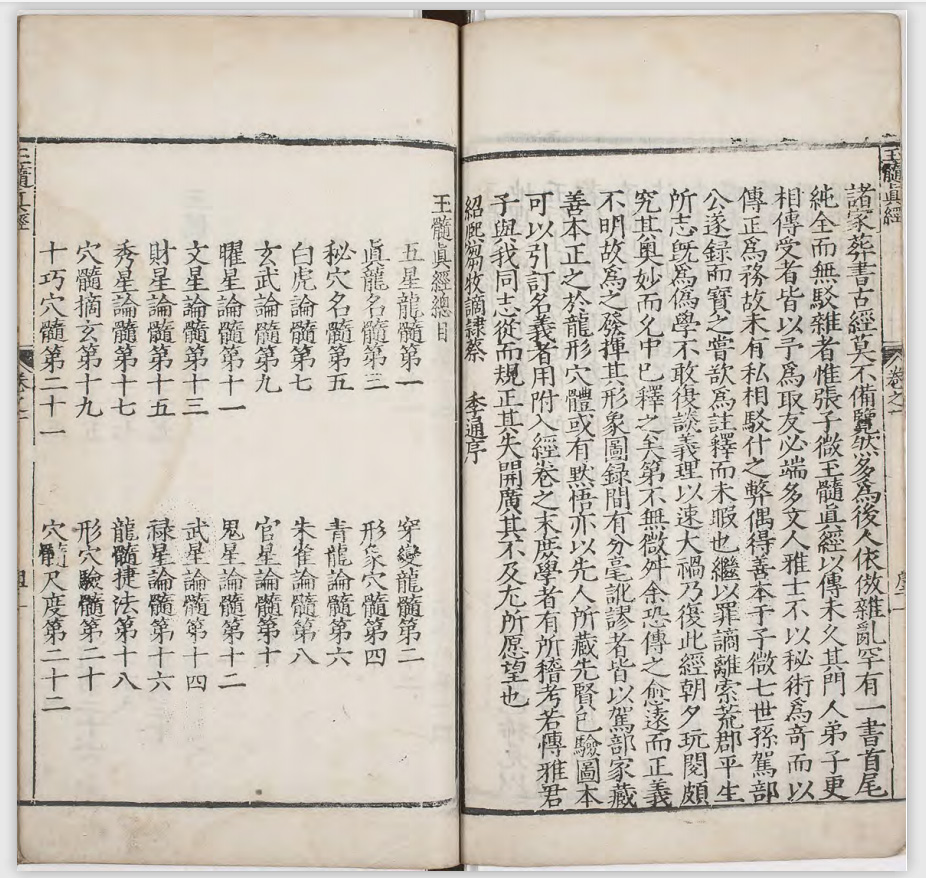 玉髓真經
諸家葬書古經莫不備覽然多為後人依倣雜亂罕有一書首尾
純全而無駁雜者惟張子微玉髓真經以傳未久其門人弟子更
相傳受者皆以予為取友必端多文人雅士不以秘術為奇而以
傳正為務故未有私相駁什之弊偶得善本于子微七世孫駕部
公遂録而寶之嘗欲為註釋而未暇也繼以罪謫離索荒郡平生
所志既為偽學不敢復談義理以速大禍乃復此經朝夕玩閱頗
究其奧妙而名中已釋之矣第不無微舛余恐傳之愈遠而正義
不明故為之發揮其形象圖録間有分毫訛謬者皆以駕部家藏
善本正之於龍形穴體或有默悟亦以先人所藏先賢已驗圖本
可以引訂名義者用附入經卷之末庶學者有所稽考若博雅君
子與我同志從而規正其失開廣其不及尤所愿望也
紹熙 牧謫隸蔡 季通序
玉髓真經總目
五星龍髓第一 穿變龍髓第二
真龍名髓第三 形象穴髓第四
秘穴名髓第五 青龍論髓第六
白虎論髓第七 朱雀論髓第八
玄武論髓第九 官星論髓第十
曜星論髓第十一 鬼星論髓第十二
文星論髓第十三 武星論髓第十四
財星論髓第十五 禄星論髓第十六
秀星論髓第十七 龍髓捷法第十八
穴髓摘玄第十九 形穴驗髓第二十
十巧穴髓第二十一 穴髓尺度第二十二
玉髓真經